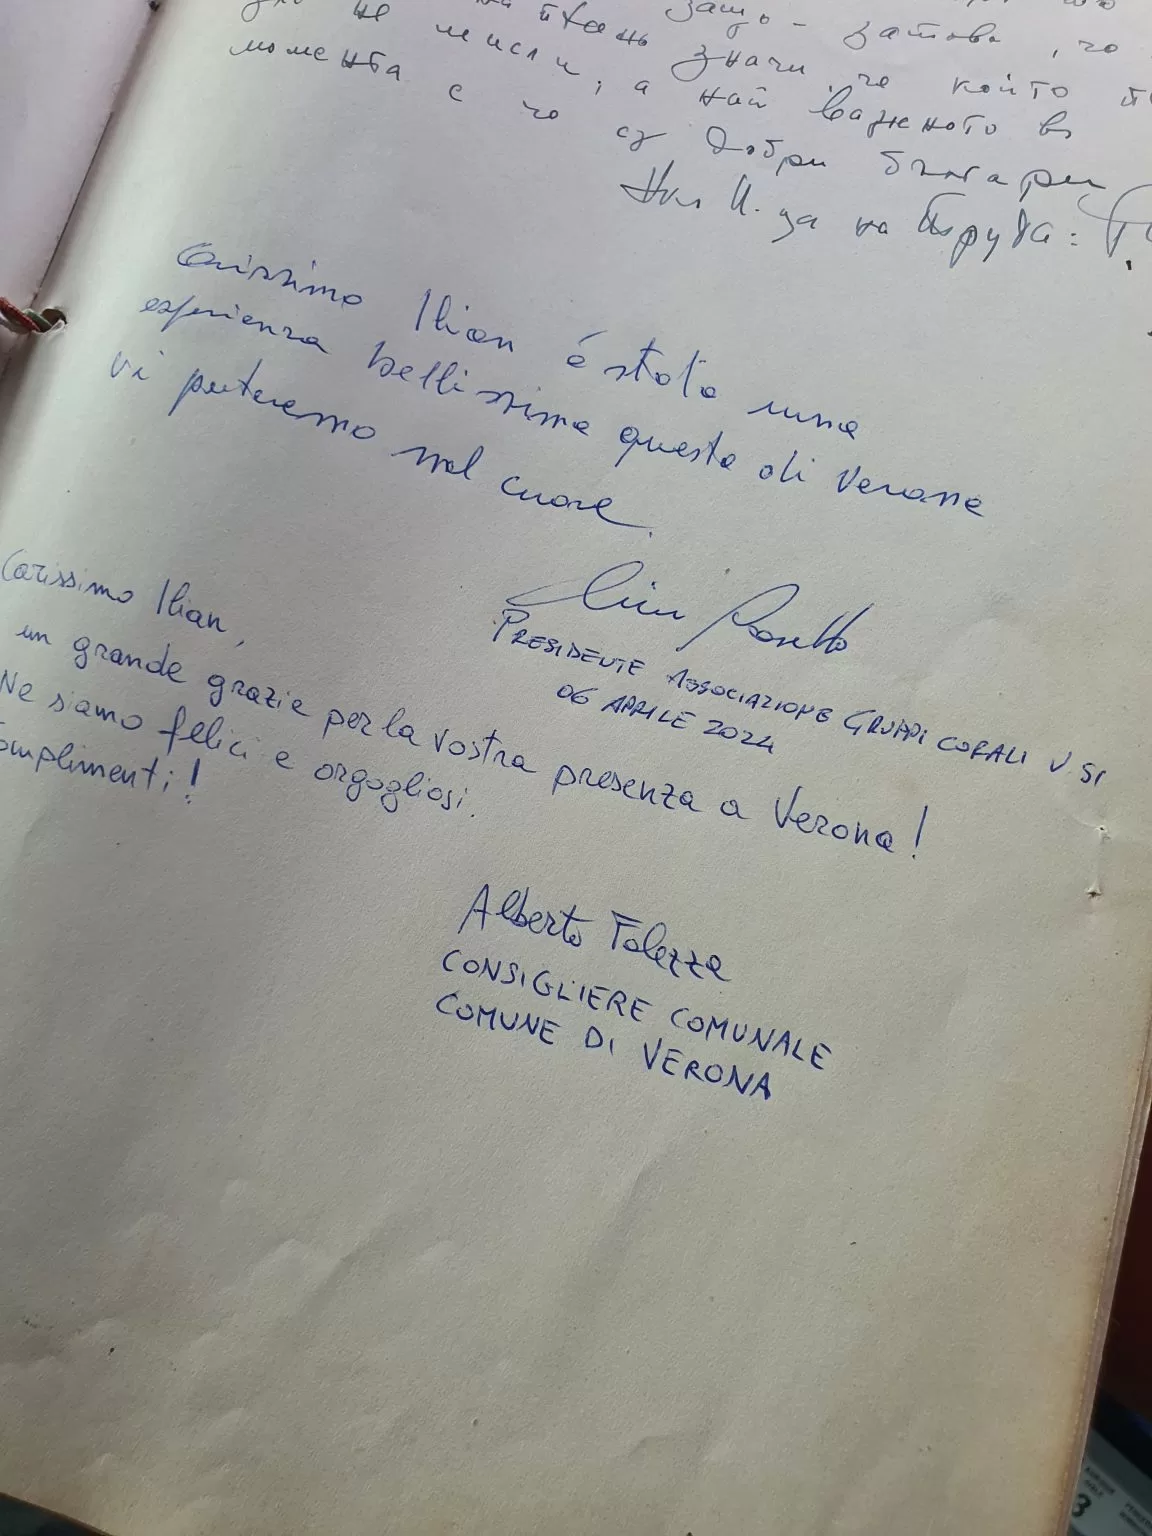 защо - затова, че
не мисли, а значи, че който
момента е че най важното в
са добри българи
Carissimo Ilian é stata una
esperienza bellissima questa di Verona
vi porteremo nel cuore.
PRESIDENTE ASSOCIAZIONE GRUPPI CORALI V.SI
06 APRILE 2024
Carissimo Ilian,
un grande grazie per la vostra presenza a Verona!
Ne siamo felici e orgogliosi.
Complimenti!
Alberto Falezza
CONSIGLIERE COMUNALE
COMUNE DI VERONA
3